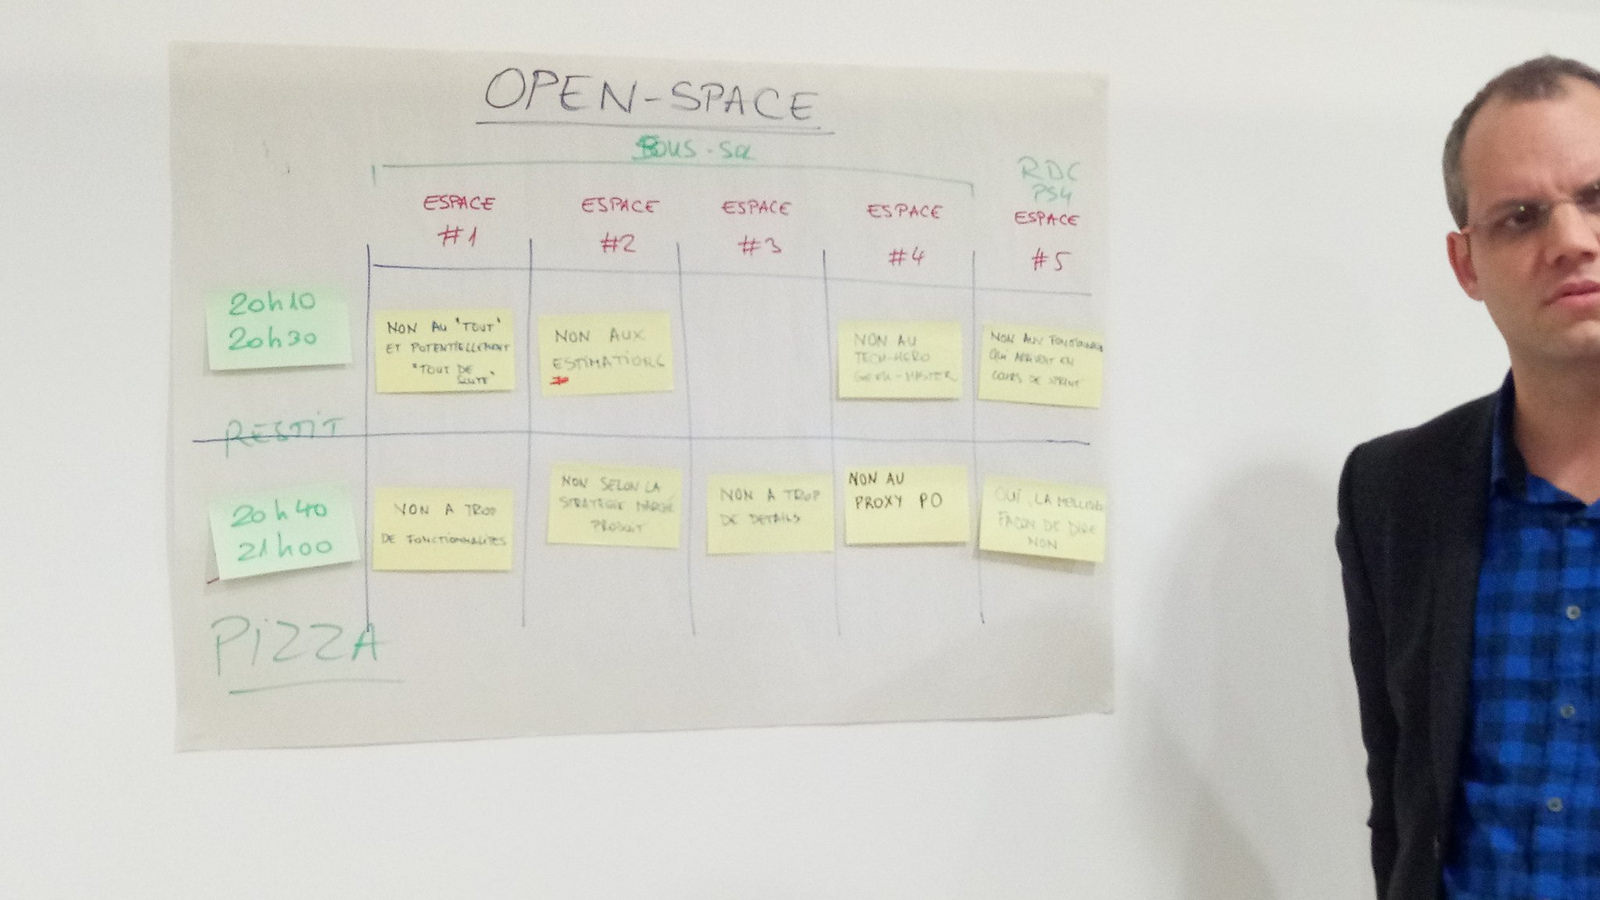 OPEN-SPACE
SOUS-SOL
RDC
PS4
ESPACE
#1
ESPACE
#2
ESPACE
#3
ESPACE
#4
ESPACE
#5
20h10
20h30
NON AU "TOUT"
ET POTENTIELLEMENT
"TOUT DE
SUITE"
NON AUX
ESTIMATIONS
NON AU
TECH-HERO
GEEK-MASTER
NON AUX
QUI ARRIVENT EN
COURS DE SPRINT
RESTIT
20h40
21h00
NON A TROP
DE FONCTIONNALITES
NON SELON LA
STRATEGIE MARCHÉ
PRODUIT
NON A TROP
DE DETAILS
NON AU
PROXY PO
OUI, LA MEILLEURE
FAÇON DE DIRE
NON
PIZZA